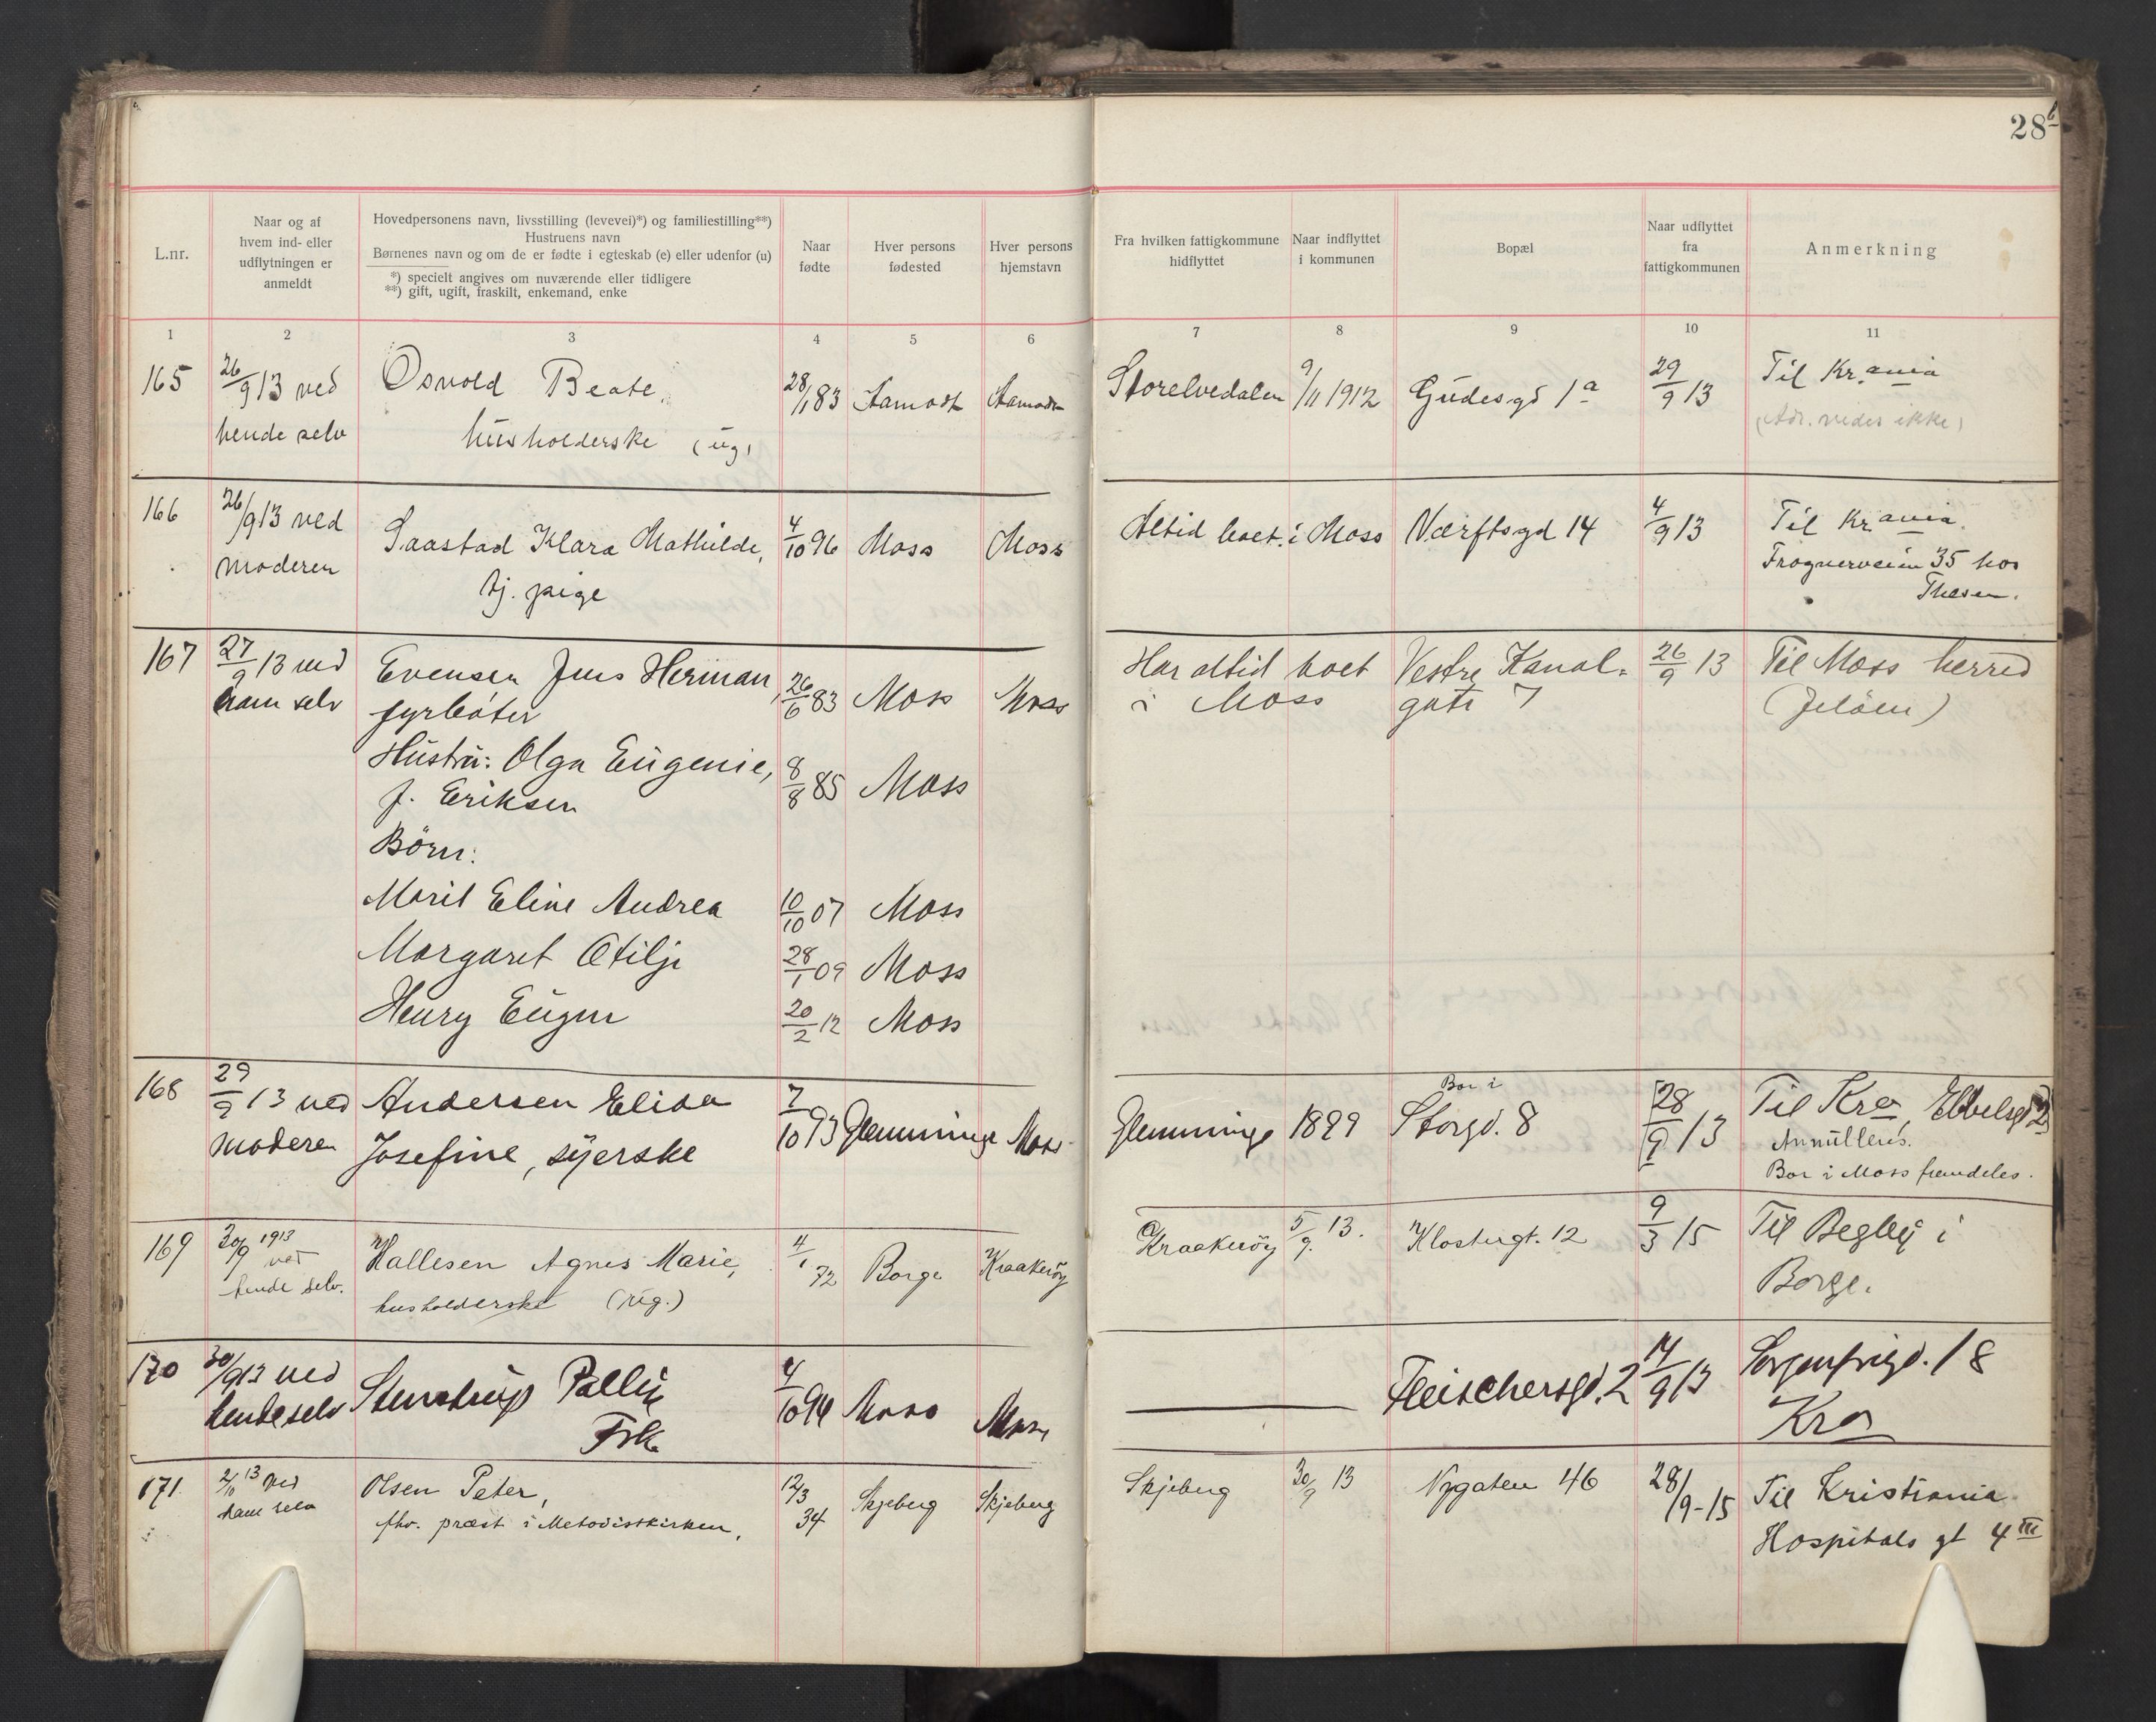 28b
L.nr.
Naar og af
hvem ind- eller
udflytningen er
anmeldt
Hovedpersonens navn, livsstilling (levevei)*) og familiestilling**)
Hustruens navn
Børnenes navn og om de er fødte i egteskab (e) eller udenfor (u)
*) specielt angives om nuværende eller tidligere
**) gift, ugift, fraskilt, enkemand, enke
Naar
fødte
Hver persons
fødested
Hver persons
hjemstavn
Fra hvilken fattigkommune
hidflyttet
Naar indflyttet
i kommunen
Bopæl
Naar udflyttet
fra
fattigkommunen
Anmerkning
1 2 3 4 5 6 7 8 9 10 11
165 26/9 13 ved Osvold Beate, 28/1 83 Aamodt Aamodt Storelvedalen 9/11 1912 Gudesgd 1a 29/9 13 Til Kr.ania
hende selv husholderske (ug) (Adr. vides ikke)
166 26/9 13 ved Saastad Klara Mathilde, 4/10 96 Moss Moss Altid boet i Moss Værftsgd 14 4/9 13 Til Krania.
moderen tj. pige Frognerveien 35 hos
Thesen.
167 27/9 13 ved Evensen Jens Herman, 26/6 83 Moss Moss Har altid boet Vestre Kanal- 26/9 13 Til Moss herred
ham selv fyrbøter i Moss gate 7 (Jeløen)
Hustru: Olga Eugenie, 8/8 85 Moss
f. Eriksen
Børn:
Marit Eline Andrea 10/10 07 Moss
Margaret Otilje 28/1 09 Moss
Henry Eugen 20/2 12 Moss
168 29/9 13 ved Andersen Elida 7/10 93 Glemminge Moss Glemminge 1899 Bor i Storgd. 8 28/9 13 Til Kra, 2
moderen Josefine, syerske Annulleres.
Bor i Moss fremdeles.
169 30/9 1913 Hallesen Agnes Marie, 4/1 72 Borge Kraakerøy Kraakerøy 5/9 13. Klostergt. 12 9/3 15 Til Begby i
ved
hende selv. husholderske (ug.) Borge.
170 30/9 13 ved Stenstrup 4/10 94 Moss Moss Fleischersgd. 2 14/9 13 Sorgenfrigd. 18
hende selv Frk. Kra
171 2/10 13 ved Olsen Peter, 12/3 34 Skjeberg Skjeberg Skjeberg 30/9 13 Nygaten 46 28/9-15 Til Kristiania
ham selv fhv. præst i Metodistkirken, Hospitals gt 4 III